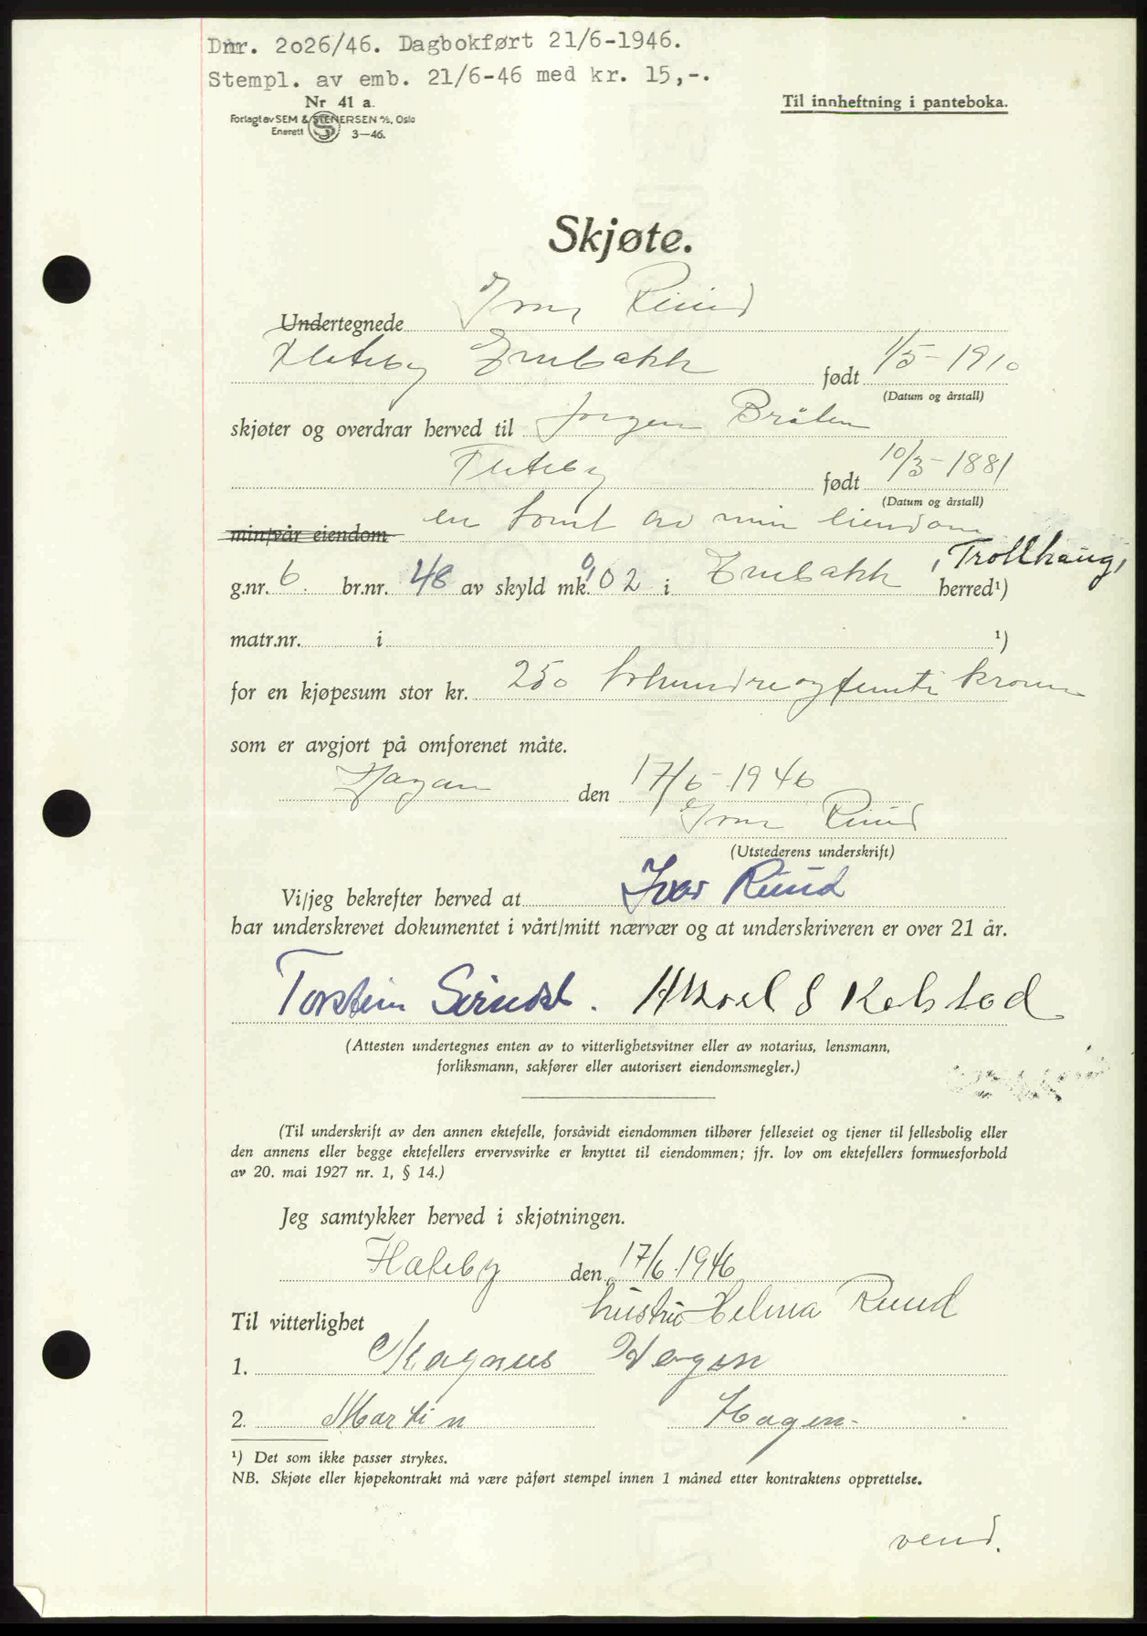 Dnr. 2026/46. Dagbokført 21/6-1946.
Stempl. av emb. 21/6-46 med kr. 15,-.
Nr 41 a.
Forlagt av SEM & STENERSEN A/S, Oslo
Enerett S 3—46.
Til innheftning i panteboka.
Skjøte.
Undertegnede Ivar Ruud
Flateby Enebakk født 1/5-1910
(Datum og årstall)
skjøter og overdrar herved til Jørgen Bråten
Flateby født 10/3-1881
(Datum og årstall)
min/vår eiendom en tomt av min eiendom
g.nr. 6 br.nr. 48 av skyld mk. 0,02 i Enebakk herred¹)
"Trollhaug"
matr.nr. i ¹)
for en kjøpesum stor kr. 250 tohundreogfemti kroner
som er avgjort på omforenet måte.
den 17/6-1946
Ivar Ruud
(Utstederens underskrift)
Vi/jeg bekrefter herved at Ivar Ruud
har underskrevet dokumentet i vårt/mitt nærvær og at underskriveren er over 21 år.
Torstein Aksel S Kolstad
(Attesten undertegnes enten av to vitterlighetsvitner eller av notarius, lensmann,
forliksmann, sakfører eller autorisert eiendomsmegler.)
(Til underskrift av den annen ektefelle, forsåvidt eiendommen tilhører felleseiet og tjener til fellesbolig eller
den annens eller begge ektefellers ervervsvirke er knyttet til eiendommen; jfr. lov om ektefellers formuesforhold
av 20. mai 1927 nr. 1, § 14.)
Jeg samtykker herved i skjøtningen.
Flateby den 17/6-1946
hustru Helma Ruud
Til vitterlighet
1. Magnus Hagen
2. Martin Hagen
¹) Det som ikke passer strykes.
NB. Skjøte eller kjøpekontrakt må være påført stempel innen 1 måned etter kontraktens opprettelse.
vend.